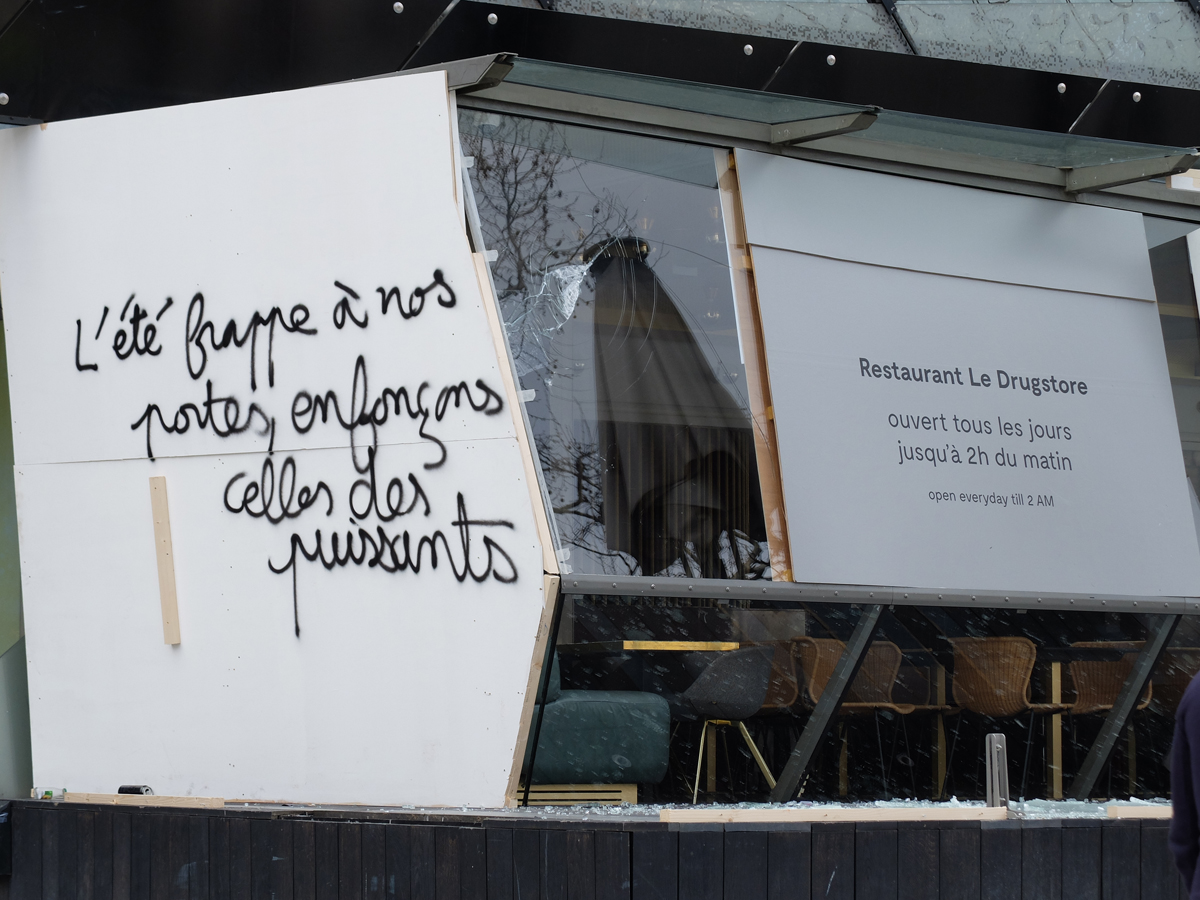 L'été frappe à nos
portes, enfonçons
celles des
puissants
Restaurant Le Drugstore
ouvert tous les jours
jusqu'à 2h du matin
open everyday till 2 AM